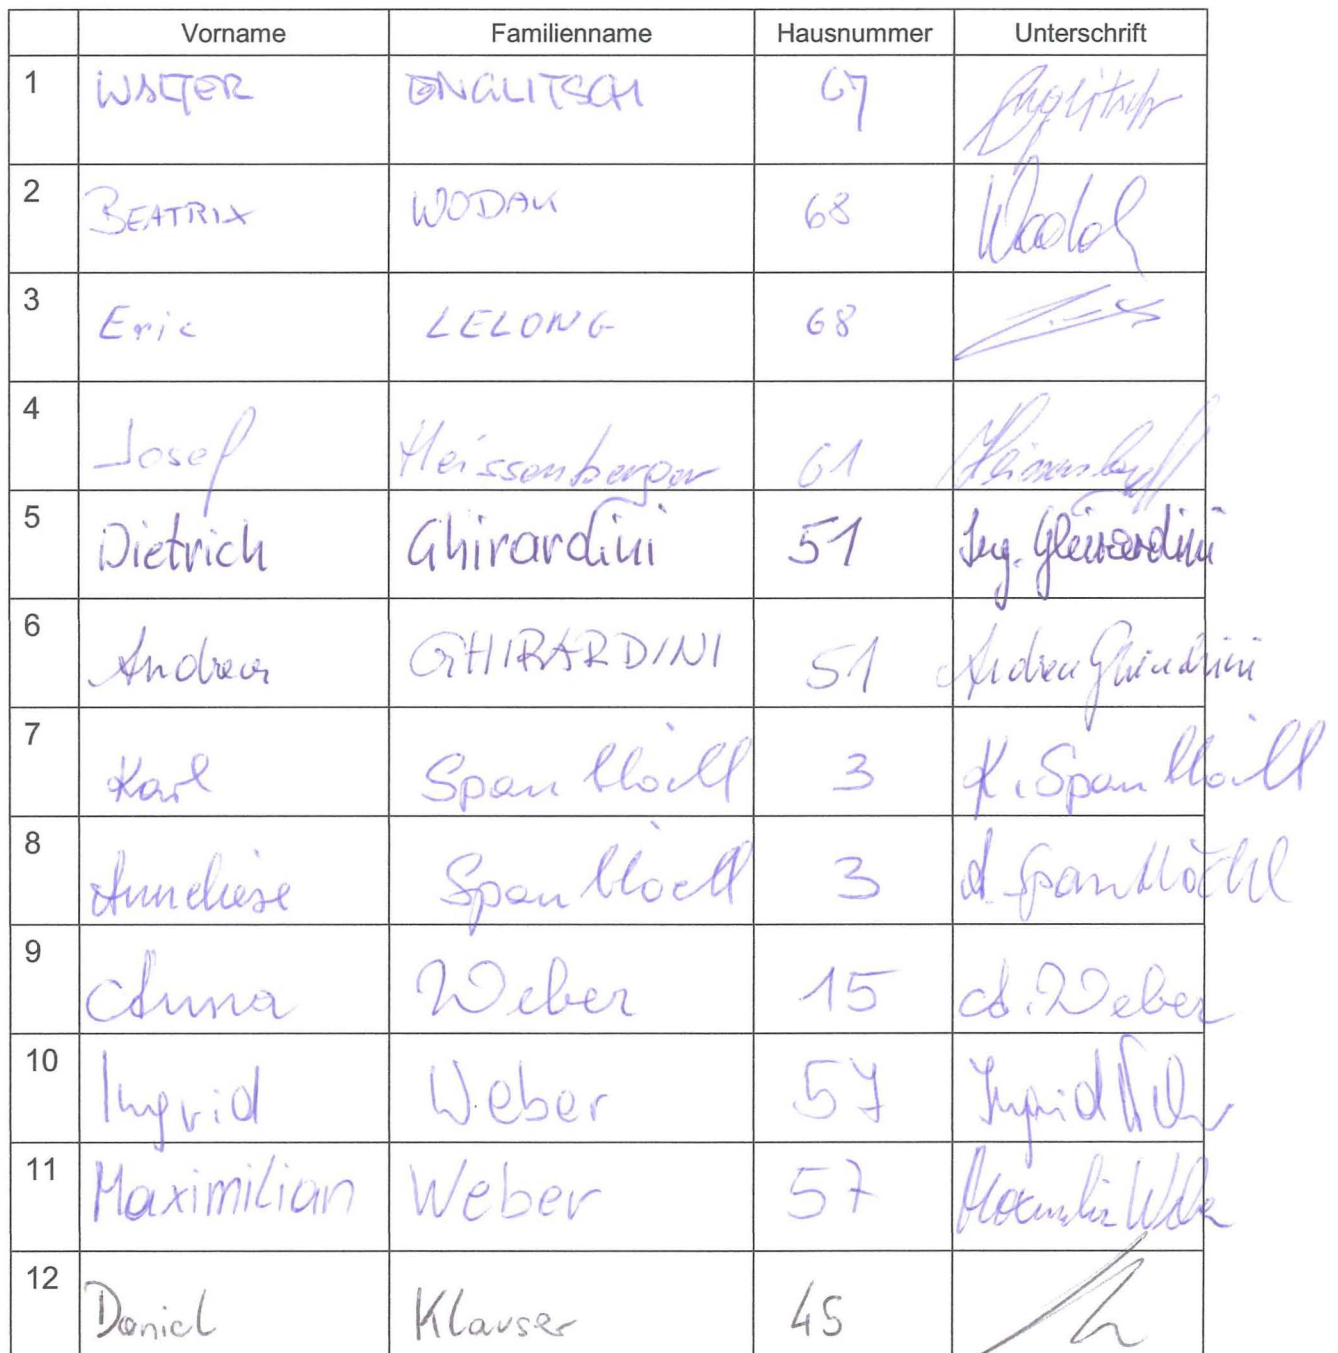 Vorname Familienname Hausnummer Unterschrift
1 WALTER ENGLITSCH 67 Englitsch
2 BEATRIX WODAK 68 Wodak
3 Eric LELONG 68
4 Josef Heissenberger 61 Heissenberger
5 Dietrich Ghirardini 51 Ing. Ghirardini
6 Andrea GHIRARDINI 51 Andrea Ghirardini
7 Karl 3 K.
8 Anneliese 3 A.
9 Anna Weber 15 A. Weber
10 Ingrid Weber 57 Ingrid Weber
11 Maximilian Weber 57 Maximilian Weber
12 Daniel Klauser 45